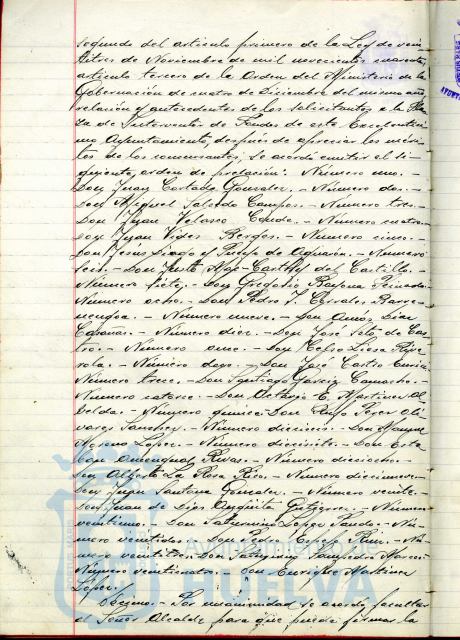 segundo del artículo primero de la Ley de vein
titres de Noviembre de mil novecientos cuarenta,
artículo tercero de la Orden del Ministerio de la
Gobernación de cuatro de Diciembre del mismo año,
relación y antecedentes de los solicitantes a la Pla
za de Interventor de Fondos de este Excelentísi
mo Ayuntamiento, después de apreciar los méri
tos de los concursantes, se acordó emitir el si
guiente orden de prelación: Número uno. -
Don Juan González. - Número dos. -
Don Miguel Salcedo Campos. - Número tres. -
Don Juan Velasco Conde. - Número cuatro. -
Don Juan Vides Borges. - Número cinco. -
Don Jesús de - Número
seis. - Don Justo Mac-Carthy del Castillo. -
Número siete. - Don Gregorio Bayona Peinado.
Número ocho. - Don Pedro J. Corrales Barre
nengoa. - Número nueve. - Don Amós Díaz
- Número diez. - Don José Soto de Cas
tro. - Número once. - Don Celso Rive
rola. - Número doce. - Don José Castro
Número trece. - Don Santiago García Camacho. -
Número catorce. - Don Octavio E. Martínez Al
belda. - Número quince: Don Oli
vares Sánchez. - Número dieciseis. - Don Manuel
Moreno López. - Número diecisiete. - Don Este
ban Rivas. - Número dieciocho. -
Don Alberto La Rosa Rico. - Número diecinueve. -
Don Juan Santana González. - Número veinte. -
Don Juan de Dios Gutiérrez. - Número
veintiuno. - Don Saturnino López Pando. - Nú
mero veintidos. - Don Pedro Crespo - Nú
mero veintitres. - Don
Número veinticuatro. - Don Enrique Martínez
López.
Décimo. - Por unanimidad se acordó facultar
al Señor Alcalde para que pueda firmar la
Ayuntamiento de
HUELVA